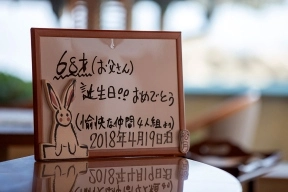 68才(お父さん)
誕生日!! おめでとう
(愉快な仲間4人組より)
2018年4月19日